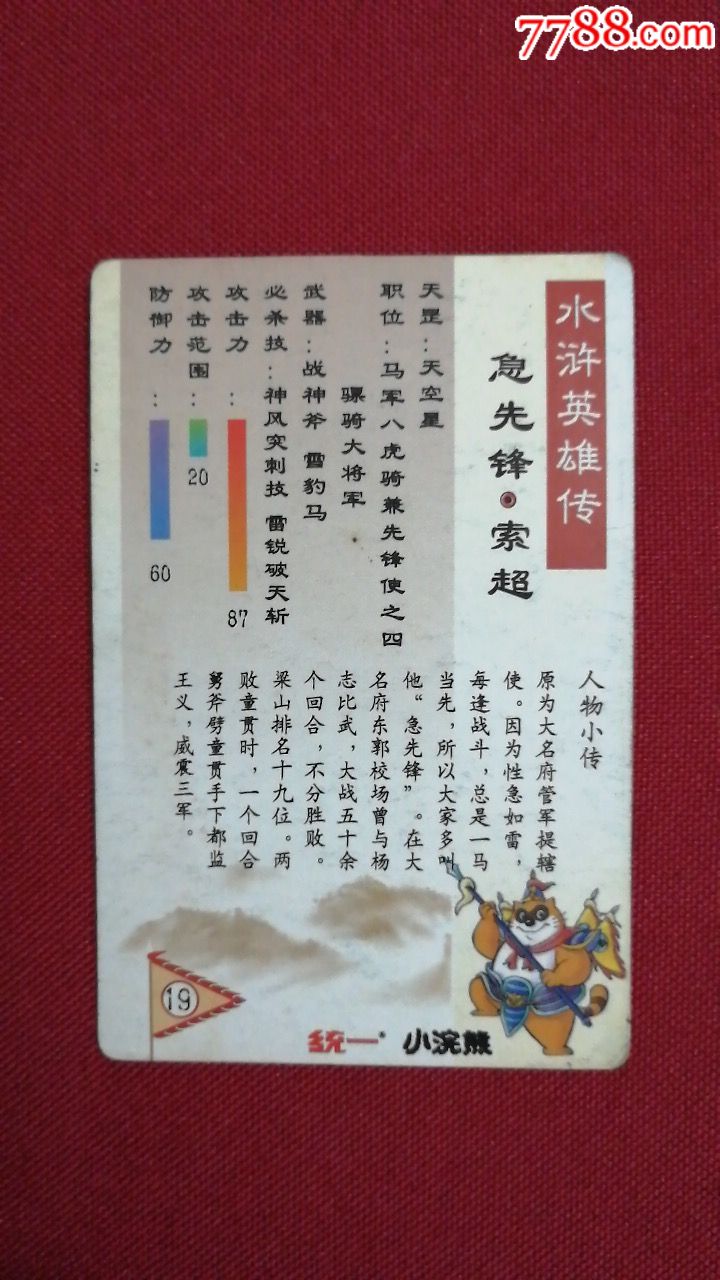 7788.com
水浒英雄传
急先锋·索超
天罡：天空星
职位：马军八虎骑兼先锋使之四
骠骑大将军
武器：战神斧 雪豹马
必杀技：神风突刺技 雷锐破天斩
攻击力：
87
攻击范围：
20
防御力：
60
人物小传
原为大名府管军提辖
使。因为性急如雷，
每逢战斗，总是一马
当先，所以大家多叫
他“急先锋”。在大
名府东郭校场曾与杨
志比武，大战五十余
个回合，不分胜败。
梁山排名十九位。两
败童贯时，一个回合
舅斧劈童贯手下都监
王义，威震三军。
19
统一 小浣熊